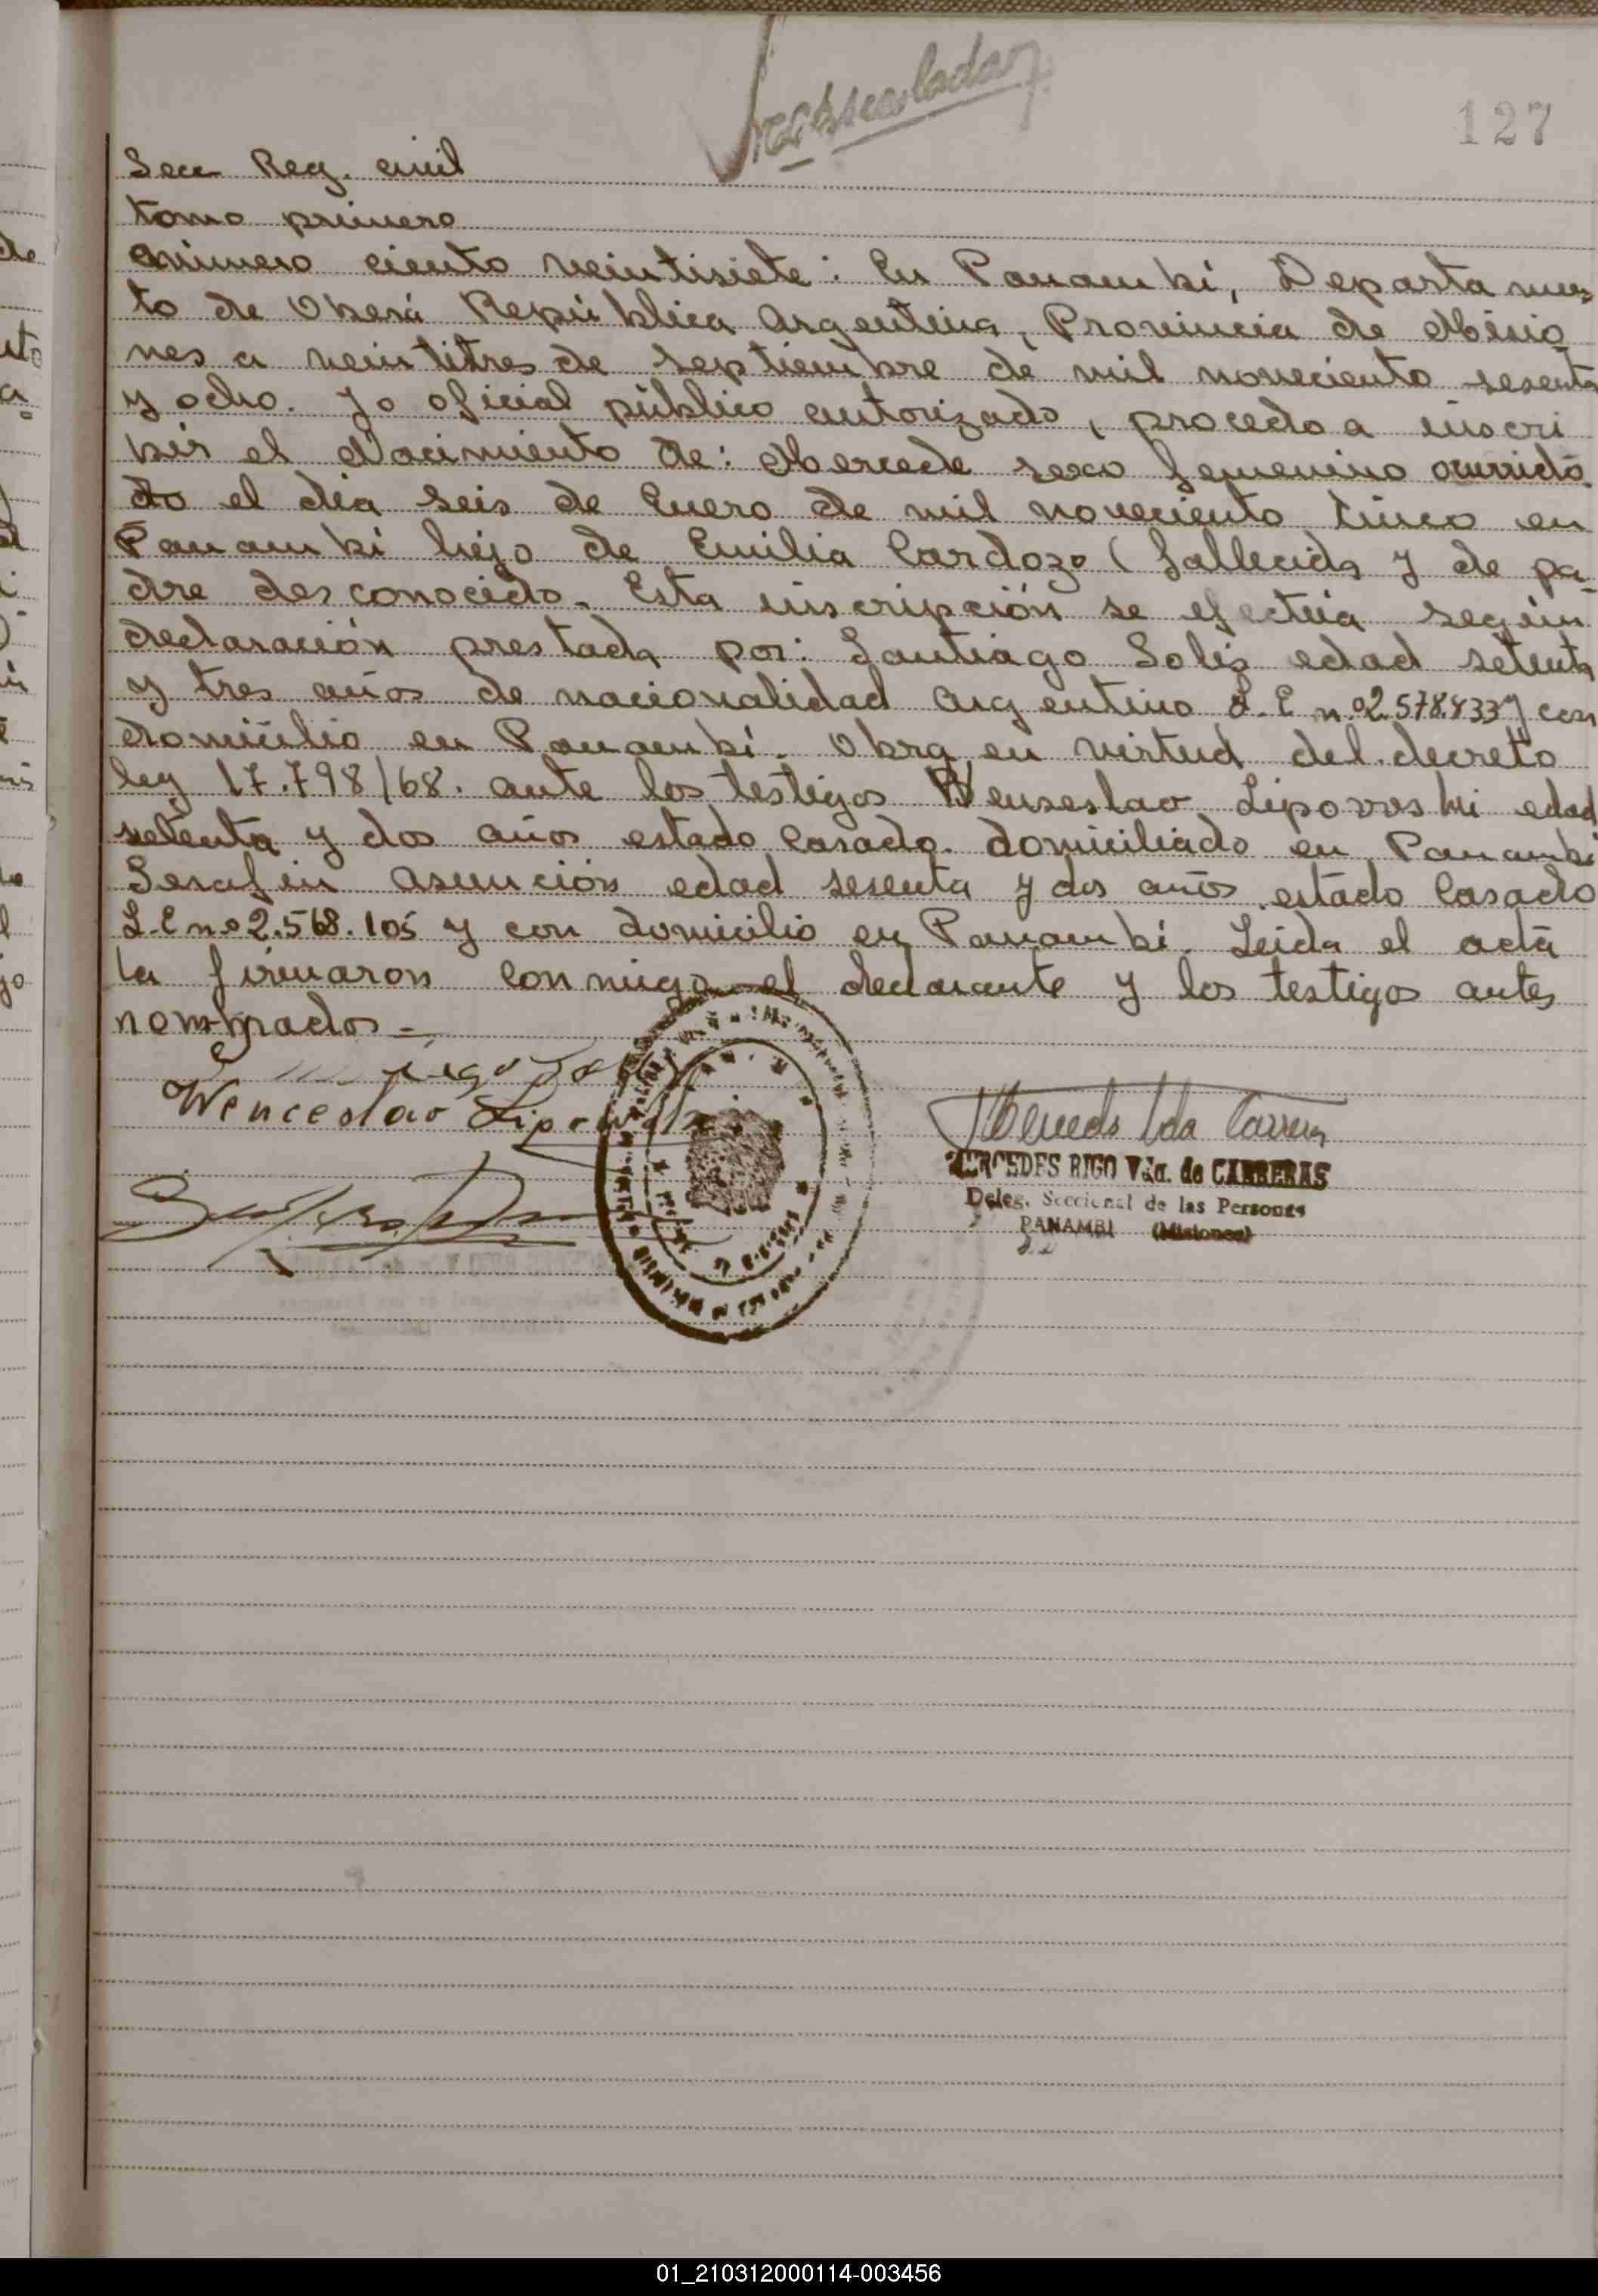 127
Secc Reg. civil
tomo primero
número ciento veintisiete: En Panambí, Departamen
to de Oberá República Argentina, Provincia de Misio
nes a veintitres de septiembre de mil noveciento sesenta
y ocho. Yo oficial público autorizado, procedo a inscri
bir el Nacimiento de: Mercede sexo femenino ocurrido
do el dia seis de Enero de mil noveciento cinco en
Panambí hijo de Emilia Cardozo (fallecida y de pa-
dre desconocido. Esta inscripción se efectúa según
declaración prestada por: Santiago Solis edad setenta
y tres años de nacionalidad Argentino L.E n.º 2.578.433 y con
domicilio en Panambí. Obrg en virtud del decreto
ley 17.798/68. ante los testigos Wenseslao Lipovoski edad
setenta y dos años estado Casado domiciliado en Panambí
Serafin Asunción edad sesenta y dos años estado Casado
L.E nº 2.568.105 y con domicilio en Panambí. Leida el acta
la firmaron conmigo el declarante y los testigos antes
nombrados.=
Wenceslao
MERCEDES RIGO Vda. de CARRERAS
Deleg. Seccional de las Personas
PANAMBI (Misiones)
01_210312000114-003456